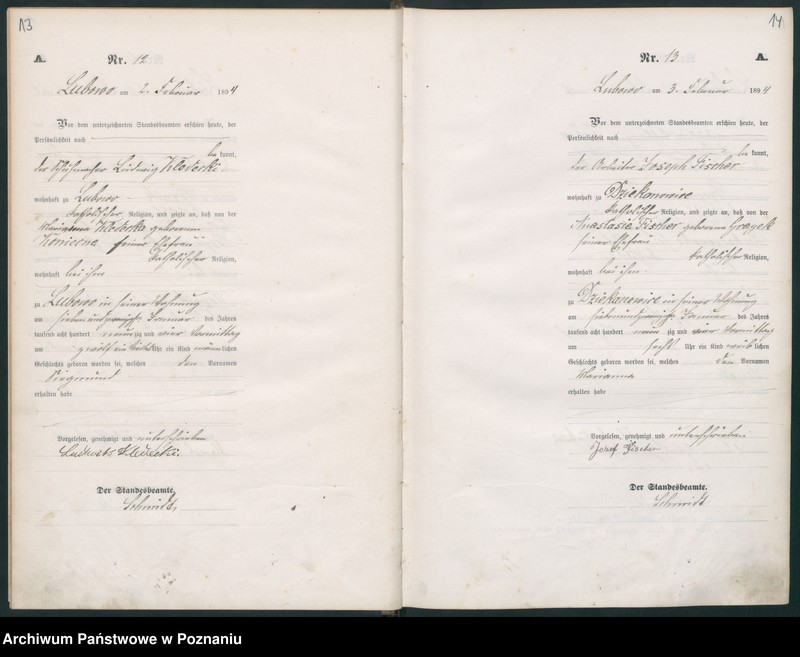 13
A.
Nr. 12
Lubowo am 2. Februar 1894
Vor dem unterzeichneten Standesbeamten erschien heute, der
Persönlichkeit nach
be kannt,
der Schuhmacher Ludwig
wohnhaft zu Lubowo
katholischer Religion, und zeigte an, daß von der
Marianna geborenen
seiner Ehefrau
katholischer Religion,
wohnhaft bei ihm
zu Lubowo in seiner Wohnung
am siebenundzwanzigsten Januar des Jahres
tausend acht hundert neun zig und vier Vormittag
um Uhr ein Kind männlichen
Geschlechts geboren worden sei, welches den Vornamen
Siegmund
erhalten habe
Vorgelesen, genehmigt und unterschrieben
Der Standesbeamte.
Schmidt
14
A.
Nr. 13
Lubowo am 3. Februar 1894
Vor dem unterzeichneten Standesbeamten erschien heute, der
Persönlichkeit nach
be kannt,
der Arbeiter Joseph Fischer
wohnhaft zu Dziekanowice
katholischer Religion, und zeigte an, daß von der
Anastasia Fischer geborene
seiner Ehefrau
katholischer Religion,
wohnhaft bei ihm
zu Dziekanowice in seiner Wohnung
am siebenundzwanzigsten Januar des Jahres
tausend acht hundert neun zig und vier Vormittag
um sechs Uhr ein Kind weib lichen
Geschlechts geboren worden sei, welches den Vornamen
Marianna
erhalten habe
Vorgelesen, genehmigt und unterschrieben
Jozef Fischer
Der Standesbeamte.
Schmidt
Archiwum Państwowe w Poznaniu